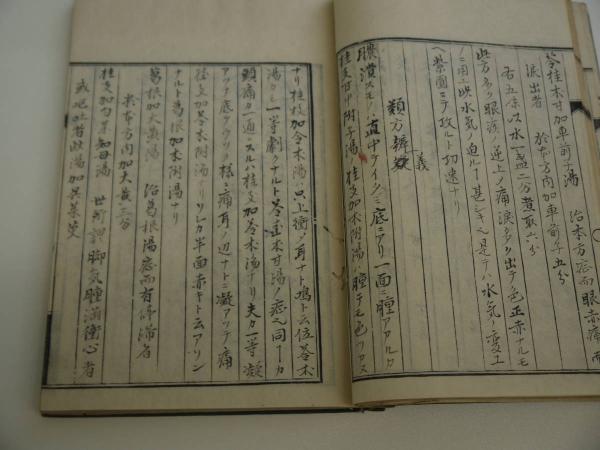 苓桂朮甘加車前子湯 治本方症而眼赤痛而
涙出者 於本方内加車前子五分
右五味以水一盞二分煮取六分
此方多ク眼疾 逆上ノ痛涙多ク出テ色正赤ナルモ
ノニ用ユ 此水氣ノ迫ル 甚シキモノ是ナリ 水氣ノ変ユ
ヘ紫圓ニテ攻ルト功速ナリ
類方辨義
膿潰スモノ 道中テイクミ 底ニアリ 一面ニ腫アカルカ
桂支甘草附子湯 桂支加朮附湯ハ 腫テモ色ツカス
ナリ 桂枝加苓朮湯ハ只上衝ノ耳ナト鳴ト云位 苓朮
湯ヨリ一等劇クナルト苓桂朮甘湯ノ症也 同シカ
頭痛カ一通スルハ桂支加苓朮湯ナリ 夫カ一等凝
アツテ底ヲクリ 様ニ痛耳ノ辺ナトニ凝アツテ痛
桂支加苓朮附湯ナリ ソレカ半面赤キト云アリソン
ナルト葛根加朮附湯ナリ
葛根加大黄湯 治葛根湯症而有停滞者
於本方内加大黄二分
桂支加芍薬知母湯 世所謂脚氣腫満衝心者
或吐者此湯加呉茱萸